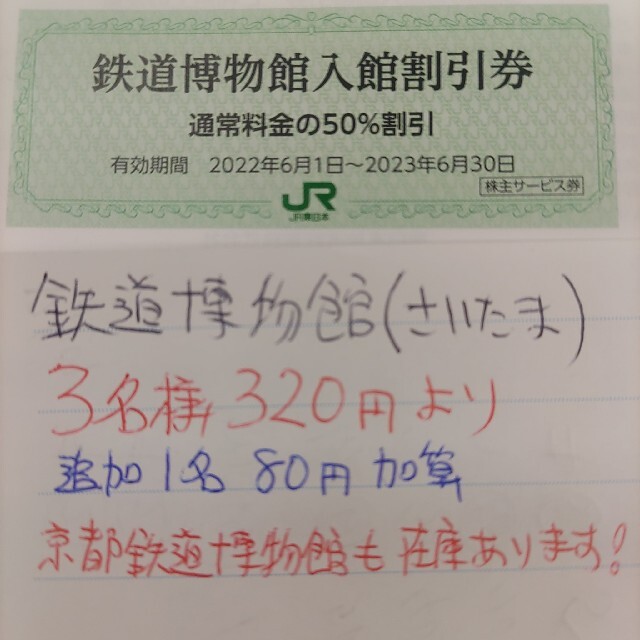 鉄道博物館入館割引券
通常料金の50%割引
有効期間 2022年6月1日〜2023年6月30日
株主サービス券
JR
JR東日本
鉄道博物館(さいたま)
3名様 320円より
追加1名 80円加算
京都鉄道博物館も在庫あります!